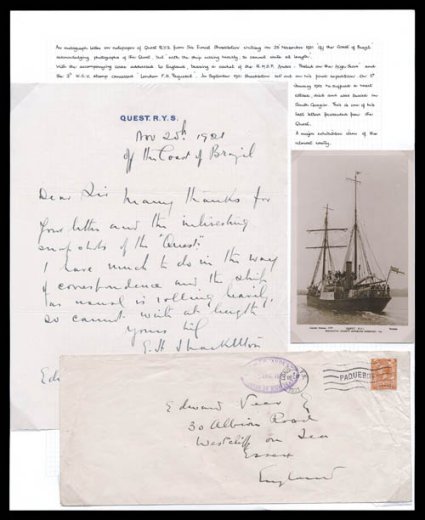 An autograph letter on notepaper of Quest R.Y.S. from Sir Ernest Shackleton writing on 25 November 1921 off the Coast of Brazil
acknowledging photographs of the Quest, but with the ship rolling heavily, he cannot write at length.
With the accompanying cover addressed to England, bearing a cachet of the R.M.S.P. Andes "Posted on the High Seas" and
the 2d K.G.V. stamp cancelled London F.S. Paquebot. In September 1921 Shackleton set out on his
January 1922 he suffered a heart
attack, died and was buried on
South Georgia. This is one of his
last letters from the
Quest.
A major exhibition item of the
utmost rarity.
QUEST. R.Y.S.
Nov 25th 1921
off the Coast of Brazil
Dear Sir Many thanks for
your letter and the interesting
snapshots of the "Quest".
I have much to do in the way
of correspondence and the ship
as usual is rolling heavily,
so cannot write at length
Yours
E H Shackleton
QUEST, R.Y.S.
PAQUEBOT
Edward Vear
30 Albion Road
Westcliff on Sea
Essex
England